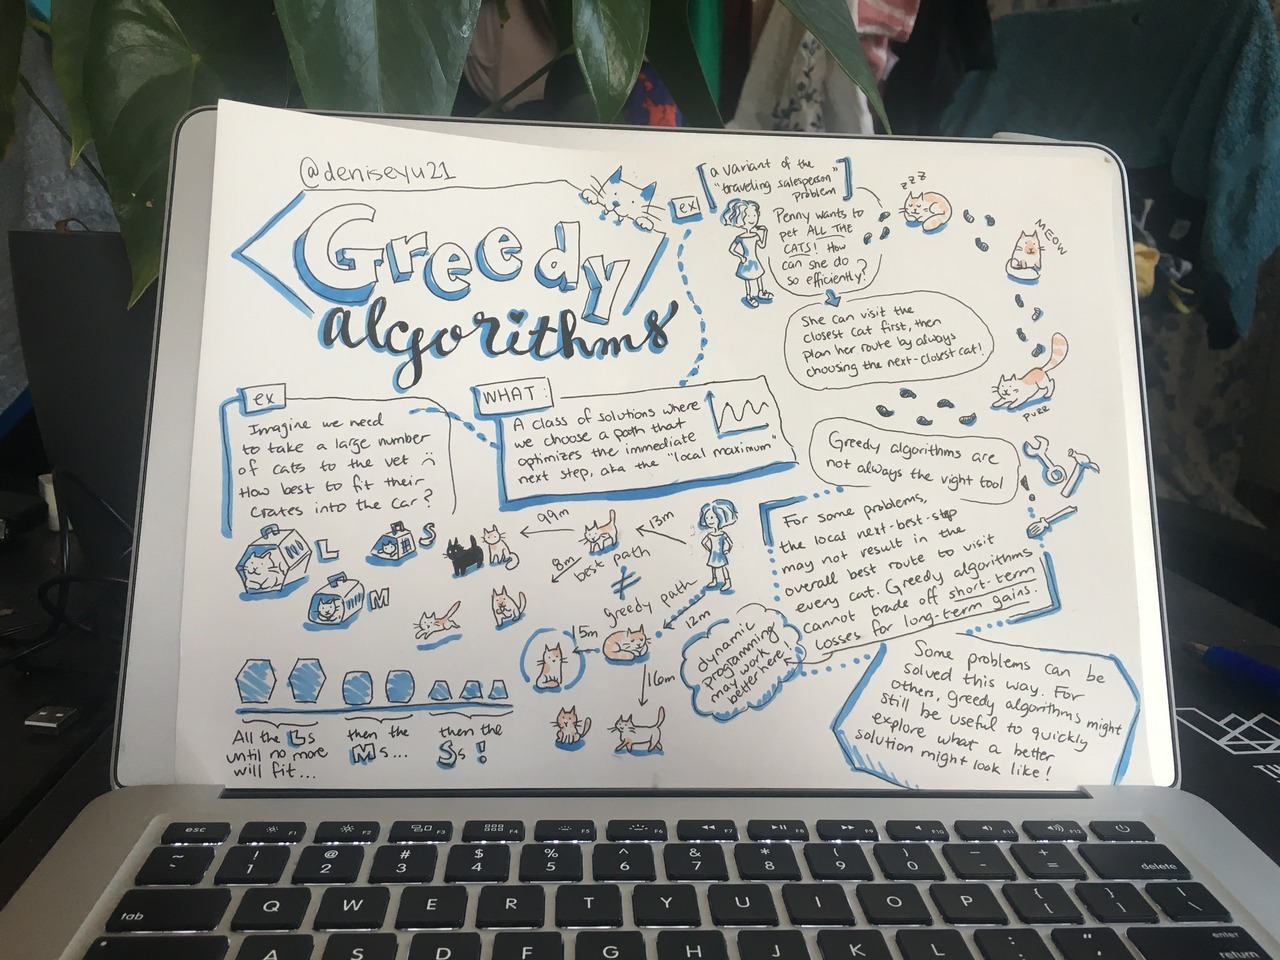 @deniseyu21
Greedy
algorithms
ex
a variant of the
"traveling salesperson"
problem
Penny wants to
pet ALL THE
CATS! How
can she do
so efficiently?
zzz
MEOW
She can visit the
closest cat first, then
plan her route by always
choosing the next-closest cat!
purr
ex
Imagine we need
to take a large number
of cats to the vet :(
How best to fit their
crates into the car?
L
S
M
All the Ls
until no more
will fit...
then the
Ms...
then the
Ss!
WHAT:
A class of solutions where
we choose a path that
optimizes the immediate
next step, aka the "local maximum"
99m
13m
8m
best path
≠
greedy path
12m
15m
16m
Greedy algorithms are
not always the right tool
For some problems,
the local next-best-step
may not result in the
overall best route to visit
every cat. Greedy algorithms
cannot trade off short-term
losses for long-term gains.
dynamic
programming
may work
better here!
Some problems can be
solved this way. For
others, greedy algorithms might
still be useful to quickly
explore what a better
solution might look like!
esc F1 F2 F3 F4 F5 F6 F7 F8 F9 F10 F11 F12
~ ! @ # $ % ^ & * ( ) _ +
\` 1 2 3 4 5 6 7 8 9 0 - = delete
tab Q W E R T Y U I O P { } |
[ ] \
A S D F G H J K L : " enter
; ' return